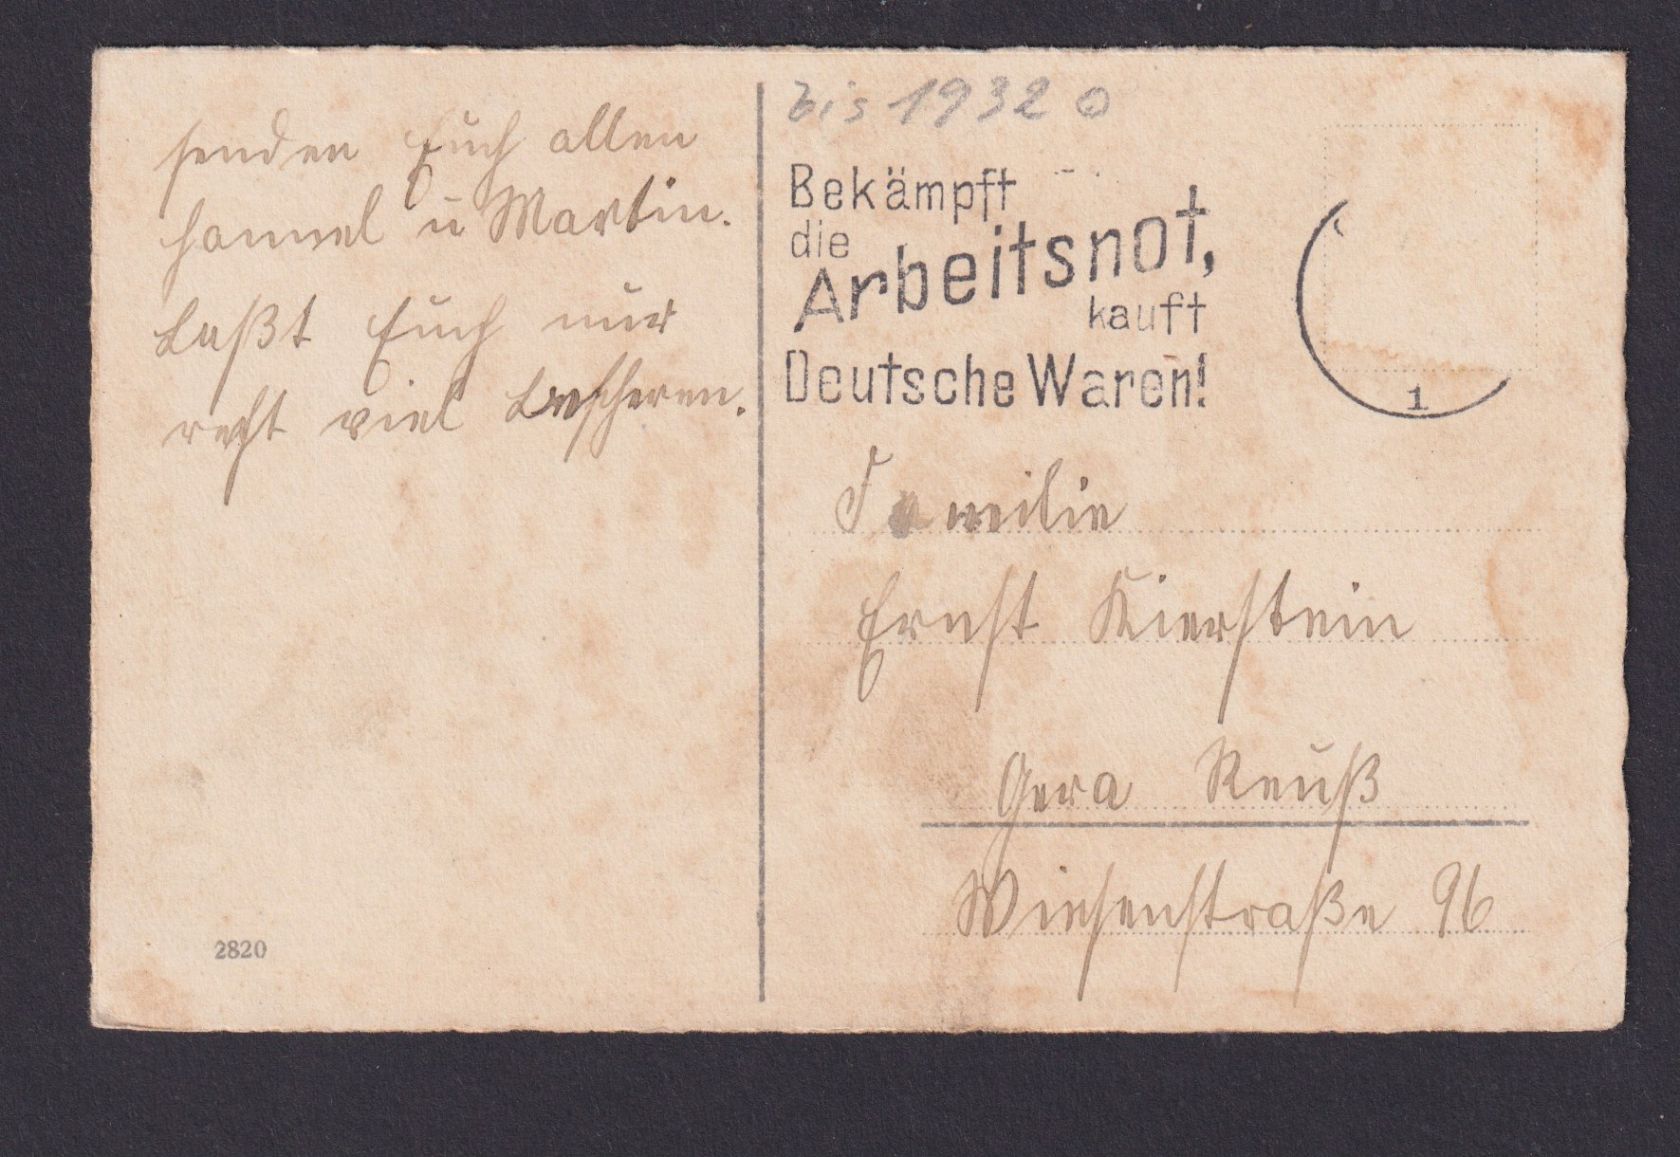 senden Euch allen
Hannel u Martin.
Laßt Euch nur
recht viel bescheren.
2820
bis 1932 o
Bekämpft
die
Arbeitsnot,
kauft
Deutsche Waren!
1
Familie
Ernst Kierstein
Gera Reuß
Wiesenstraße 96